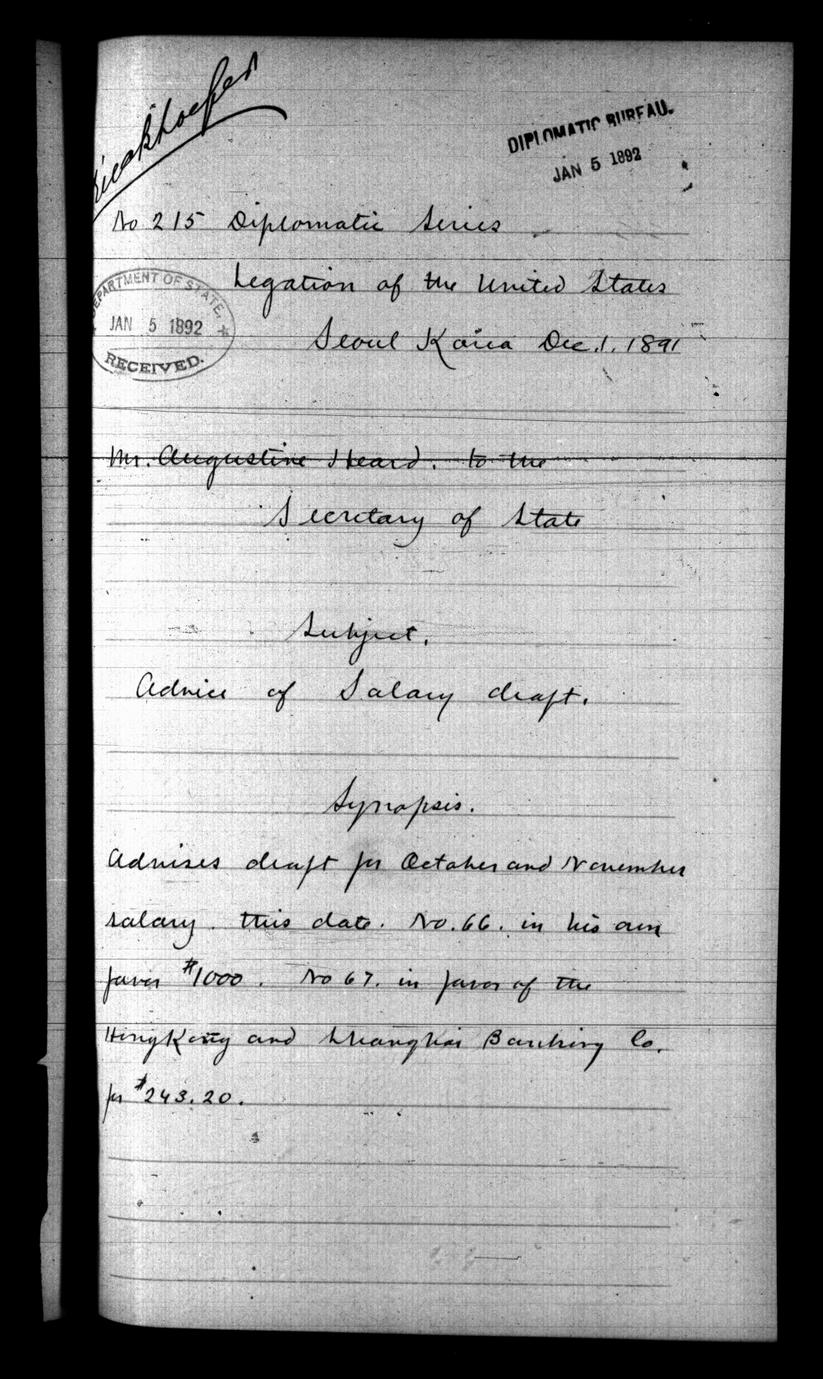 Kieckhoefer
DIPLOMATIC BUREAU.
JAN 5 1892
No 215 Diplomatic Series
Legation of the United States
DEPARTMENT OF STATE.
JAN 5 1892
RECEIVED.
Seoul Korea Dec. 1. 1891
Mr. Augustine Heard. to the
Secretary of State
Subject.
Advice of Salary draft.
Synopsis.
Advises draft for October and November
salary. this date. No. 66. in his own
favor $1000. No 67. in favor of the
HongKong and Shanghai Banking Co.
for $243.20.